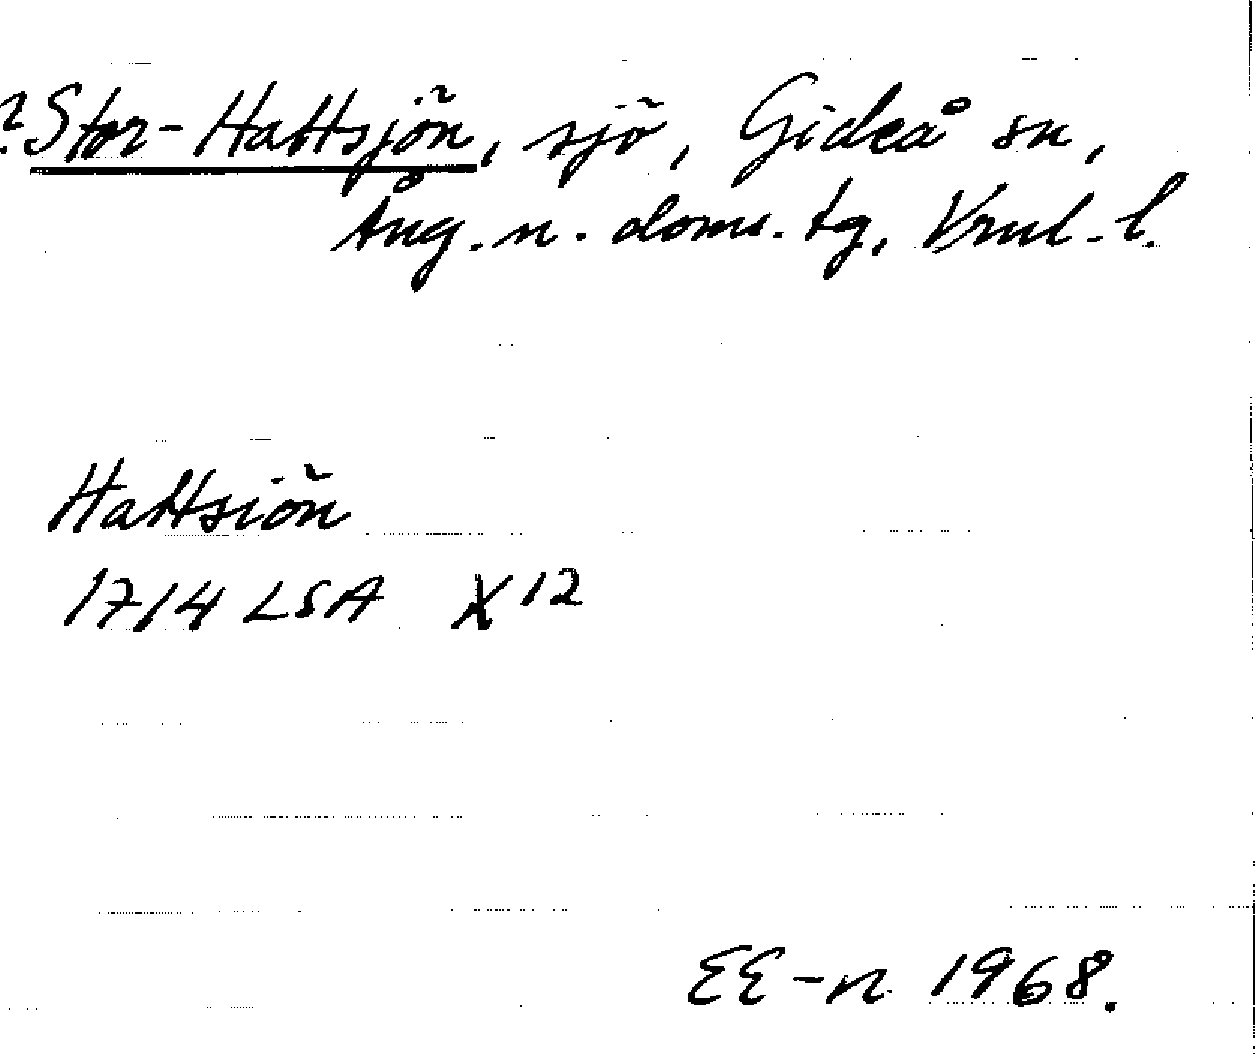 ? Stor-Hattsjön, sjö, Gideå sn,
Ång. n. doms. tg, Vrnl. l.
Hattsiön
1714 LSA X 12
EE-n 1968.